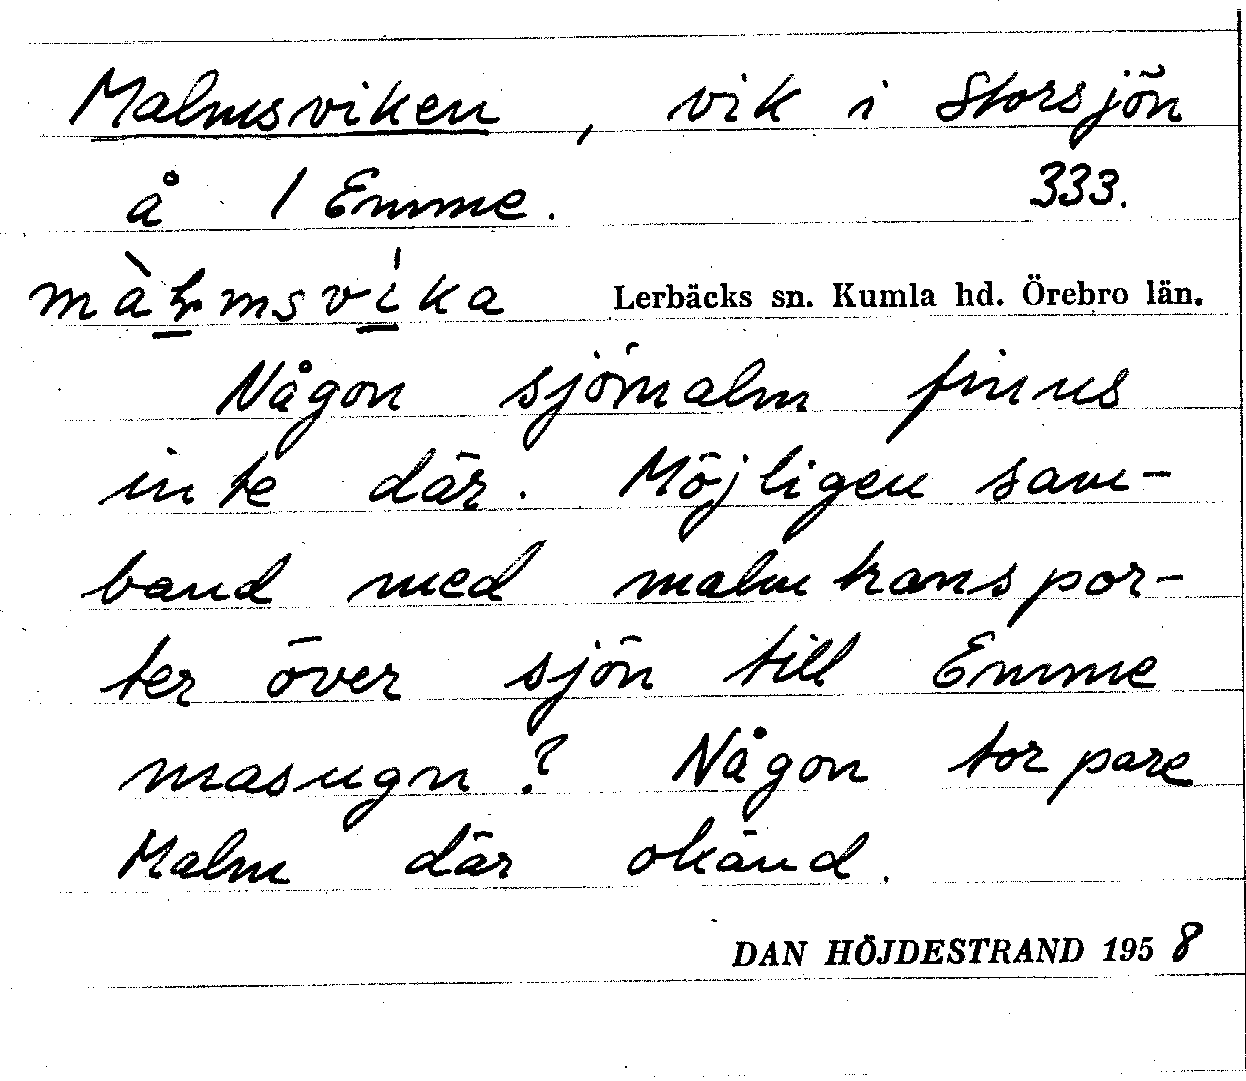 Malmsviken, vik i Storsjön
å 1 Emme. 333.
màɽmsvíka Lerbäcks sn. Kumla hd. Örebro län.
Någon sjömalm finns
inte där. Möjligen sam-
band med malmtranspor-
ter över sjön till Emme
masugn? Någon torpare
Malm där okänd.
DAN HÖJDESTRAND 1958